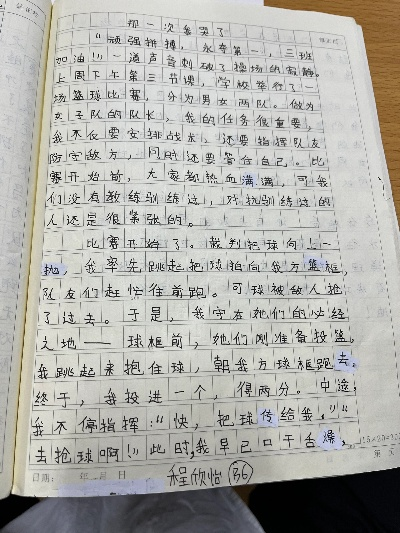 那一次我哭了
“顽强拼搏，永争第一，三班
加油！”一道声音刺破了操场的寂静。
上周下午第三节课，学校举行了一
场篮球比赛，分为男女两队。做为
女子队的队长，我的任务很重要，
我不仅要安排战术，还要指挥队友
防守敌方，同时还要管住自己。比
赛开始前，大家都热血满满，可我
们没有教练训练过，对抗训练过的
人还是很紧张的。
比赛开始了。裁判把球向上一
抛，我率先跳起把球拍向我方篮框，
队友们赶忙往前跑。可球被敌人抢
了过去。于是，我守在她们的必经
之地——球框前，她们刚准备投篮，
我跳起来抱住球，朝我方球框跑去。
终于，我投进一个，得两分。中途，
我不停指挥：“快，把球传给我。”“
去抢球啊！”此时，我早已口干舌燥，
日期： 年 月 日
程欣怡（36）